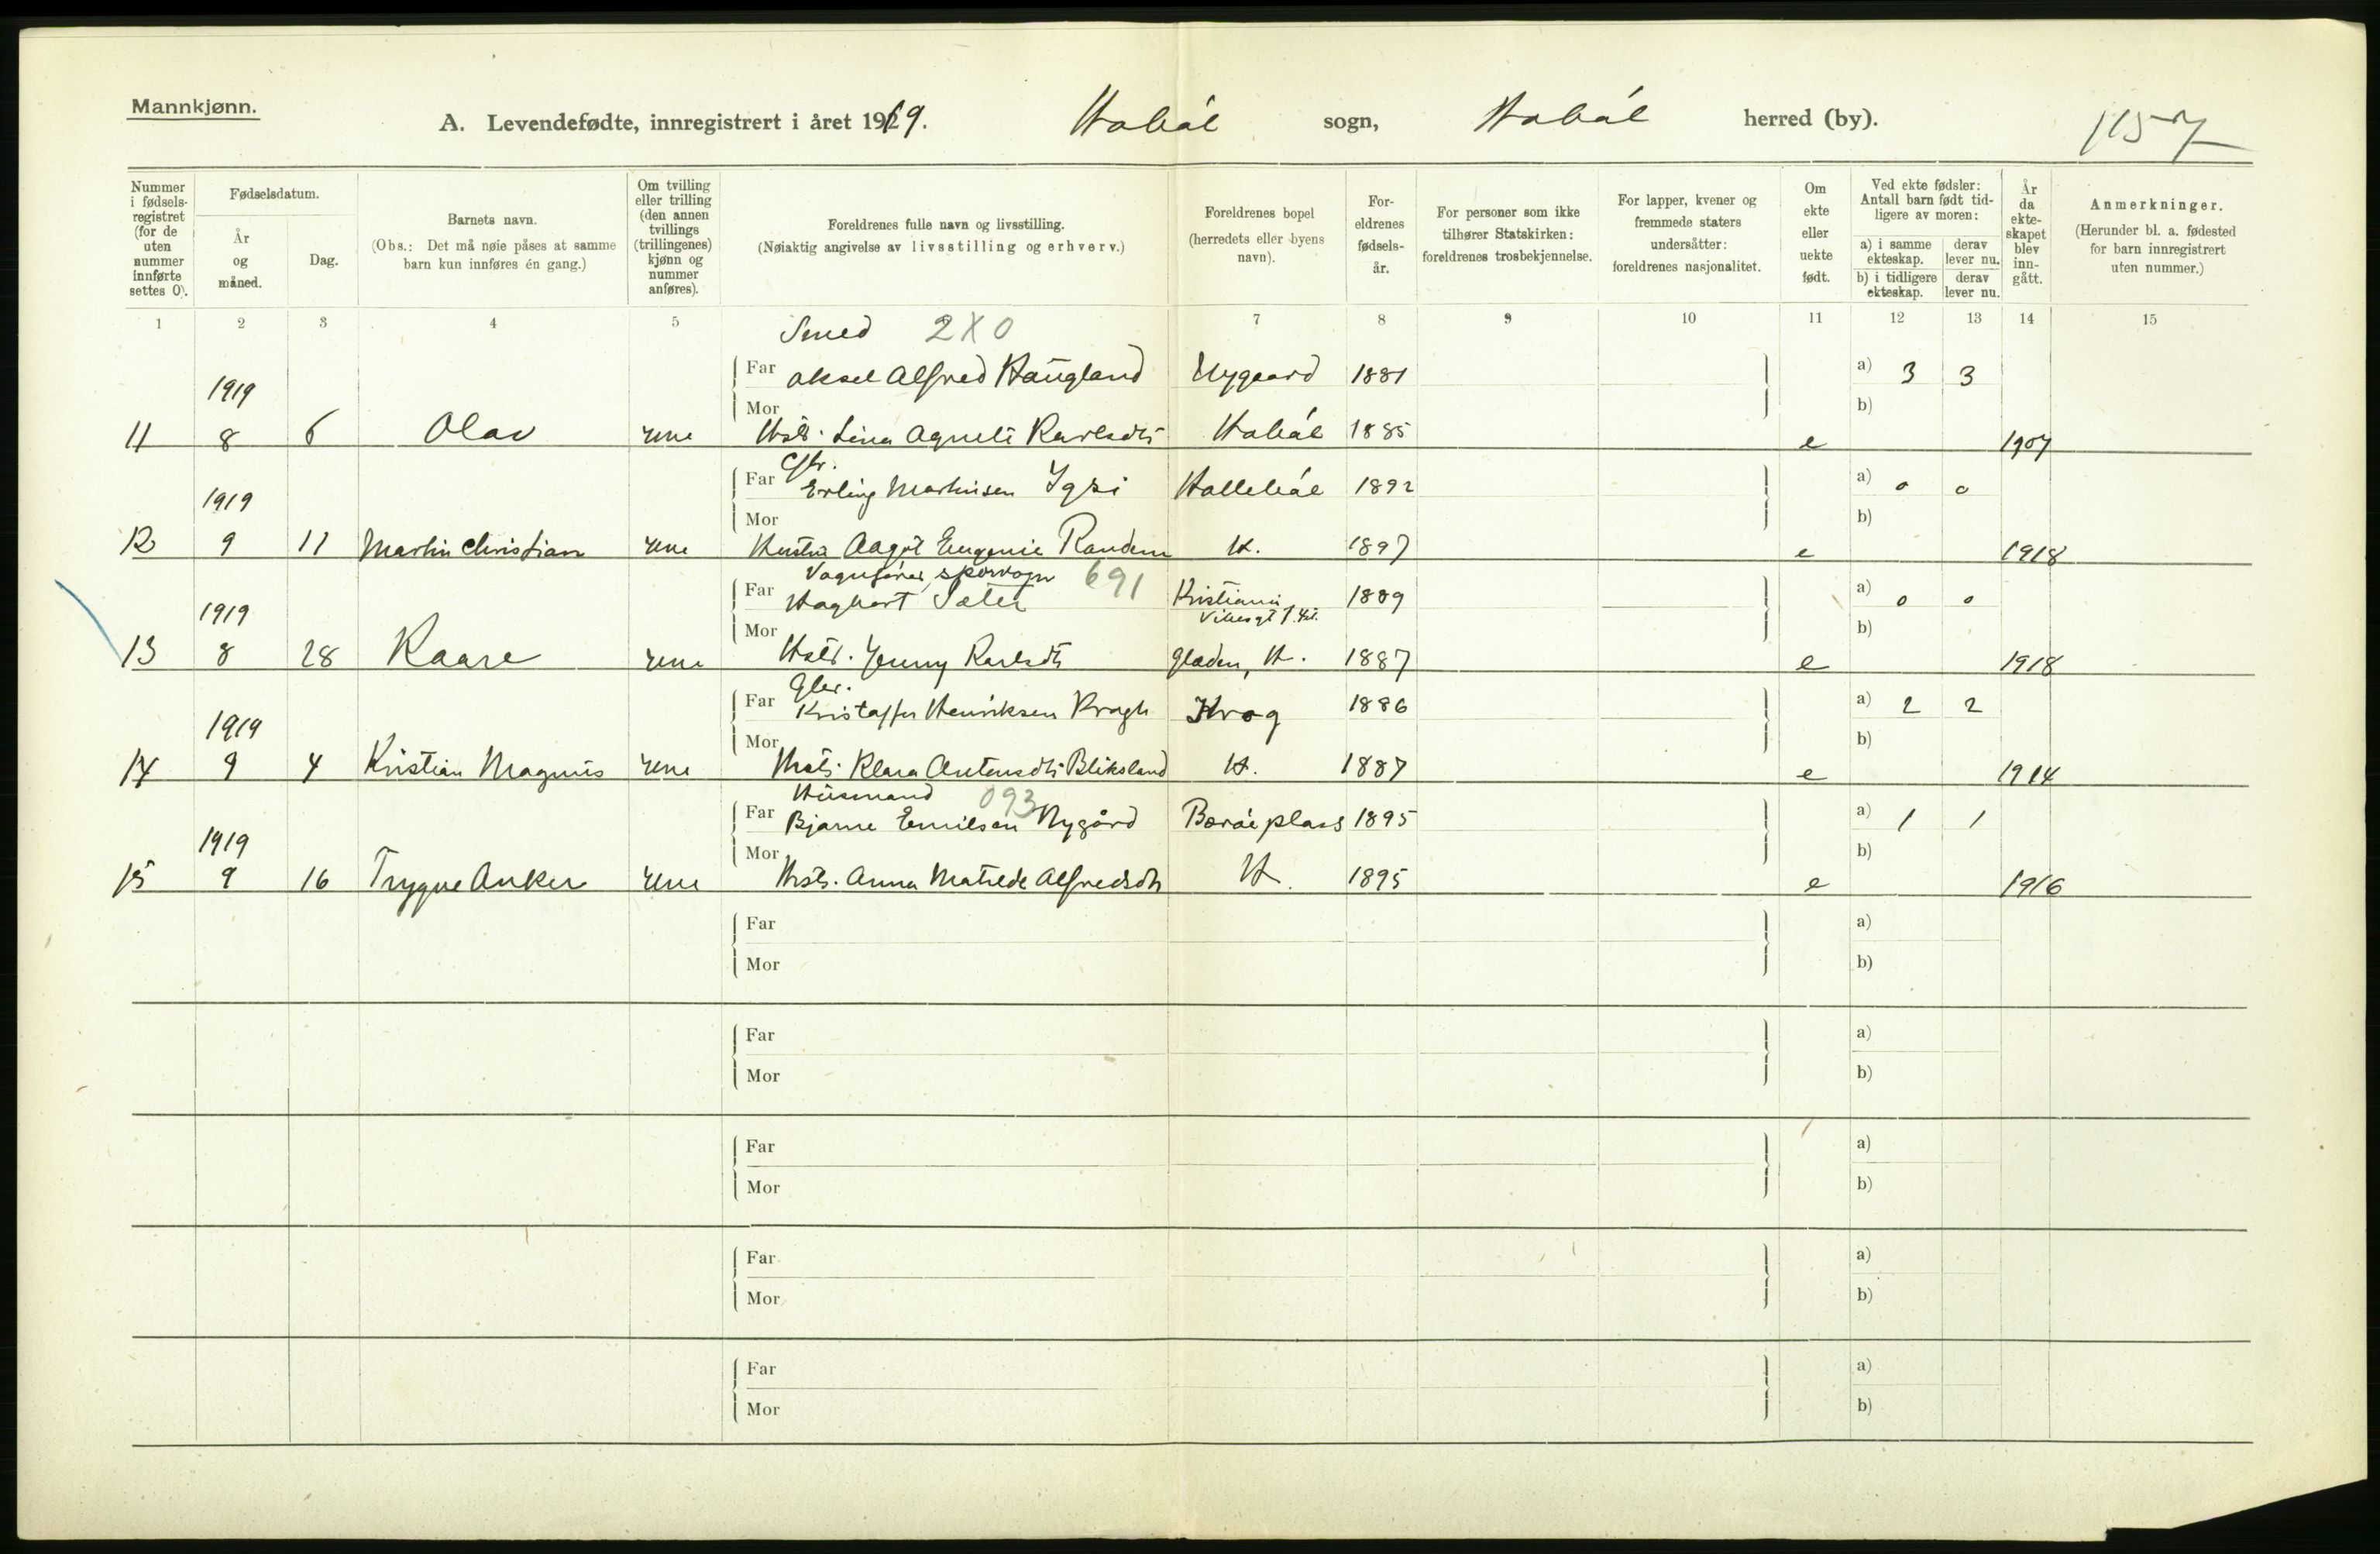 Mannkjønn.
A. Levendefødte, innregistrert i året 1919. Hobøl sogn, Hobøl herred (by). 1157
Nummer i fødselsregistret (for de uten nummer innførte settes 0).
Fødselsdatum.
År og måned.
Dag.
Barnets navn.
(Obs.: Det må nøie påses at samme barn kun innføres én gang.)
Om tvilling eller trilling (den annen tvillings (trillingenes) kjønn og nummer anføres).
Foreldrenes fulle navn og livsstilling.
(Nøiaktig angivelse av livsstilling og erhverv.)
Foreldrenes bopel (herredets eller byens navn).
Foreldrenes fødselsår.
For personer som ikke tilhører Statskirken: foreldrenes trosbekjennelse.
For lapper, kvener og fremmede staters undersåtter: foreldrenes nasjonalitet.
Om ekte eller uekte født.
Ved ekte fødsler: Antall barn født tidligere av moren:
a) i samme ekteskap. derav lever nu.
b) i tidligere ekteskap. derav lever nu.
År da ekteskapet blev inngått.
Anmerkninger.
(Herunder bl. a. fødested for barn innregistrert uten nummer.)
1 2 3 4 5 7 8 9 10 11 12 13 14 15
Smed 2X0
1919 Far Aksel Alfred Haugland Nygaard 1881 a) 3 3
Mor b)
11 8 6 Olav Hstr. Lina Agnete Karlsdtr Hobøl 1885 e 1907
Gbr.
1919 Far Erling Martinsen Igsi Hallebøl 1892 a) 0 0
Mor b)
12 9 11 Martin Christian Hustru Aagot Eugenie Randem H. 1897 e 1918
Vognfører, sporvogn 691
1919 Far Hagbart Sæter Kristiania 1889 a) 0 0
Vibesgt
Mor b)
13 8 28 Kaare Hstr. Jenny Karlsdtr Gladen, H. 1887 e 1918
Gbr.
1919 Far Kristoffer Henriksen Kragh Krog 1886 a) 2 2
Mor b)
14 9 4 Kristian Magnus Hstr. Klara Antonsdtr Bliksland H. 1887 e 1914
Husmand 093
1919 Far Bjarne Emilsen Nygård plass 1895 a) 1 1
Mor b)
15 9 16 Trygve Anker Hstr. Anna Matilde Alfredsdtr H. 1895 e 1916
Far a)
Mor b)
Far a)
Mor b)
Far a)
Mor b)
Far a)
Mor b)
Far a)
Mor b)